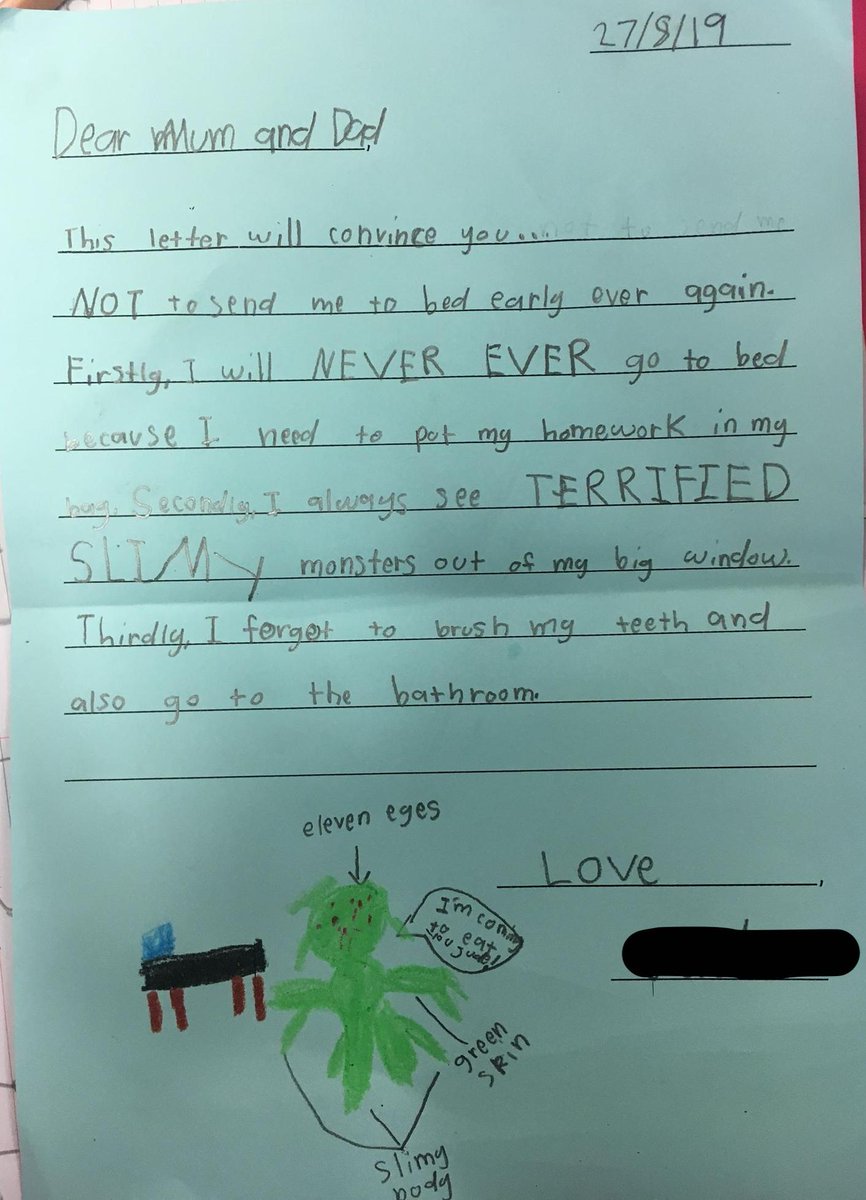 27/8/19
Dear Mum and Dad,
This letter will convince you... not to send me
NOT to send me to bed early ever again.
Firstly, I will NEVER EVER go to bed
because I need to pot my homework in my
bag. Secondly, I always see TERRIFIED
SLIMY monsters out of my big window.
Thirdly, I forget to brush my teeth and
also go to the bathroom.
eleven eyes
Love,
I'm coming
to eat
you Jude!
green
skin
slimy
body